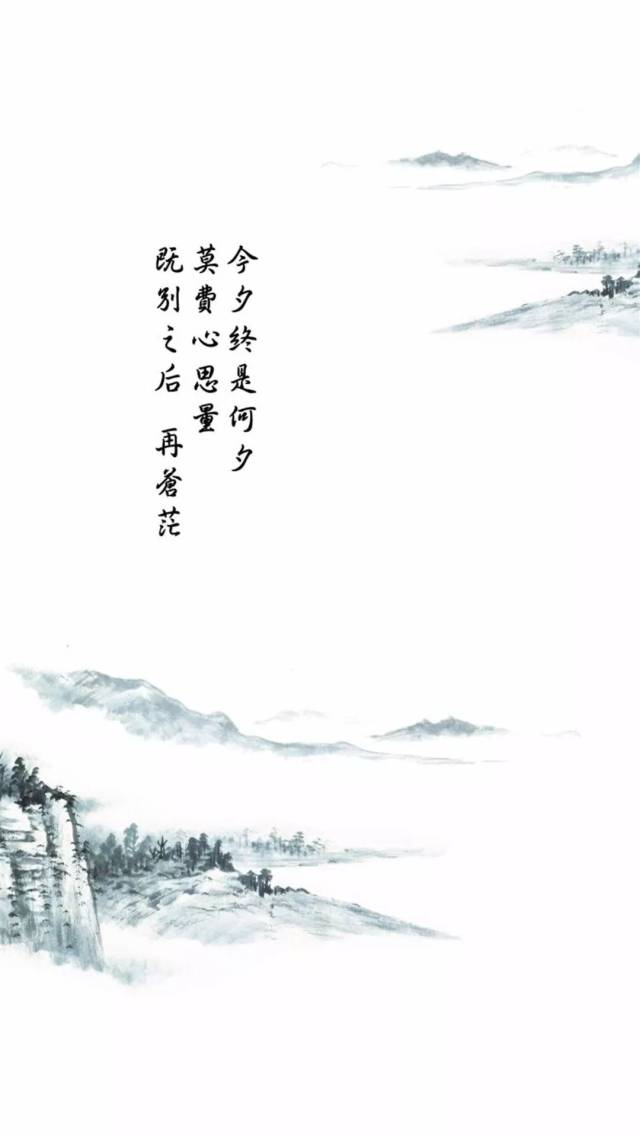 今夕终是何夕
莫費心思量
既别之后 再蒼茫